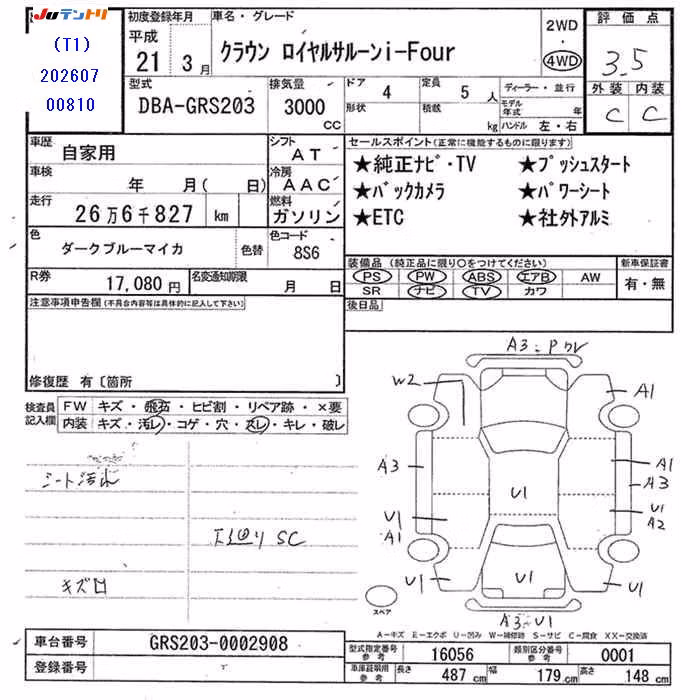 JUテントリ
(T1)
202607
00810
初度登録年月
平成
21年 3月
車名・グレード
クラウン ロイヤルサルーンi-Four
2WD
4WD
評価点
3.5
外装 内装
C C
型式
DBA-GRS203
排気量
3000 CC
ドア 4
形状
定員 5 人
積載 kg
ディーラー・並行
モデル年式 年
ハンドル 左・右
車歴 自家用
シフト AT
車検 年 月( 日)
冷房 AAC
走行 26万6千827 km
燃料 ガソリン
色 ダークブルーマイカ
色替
色コード 8S6
R券 17,080円
名変通知期限 月 日
セールスポイント(正常に機能するものに限ります)
★純正ナビ・TV ★プッシュスタート
★バックカメラ ★パワーシート
★ETC ★社外アルミ
装備品(純正品に限り○をつけてください)
PS PW ABS エアB AW
SR ナビ TV カワ
新車保証書
有・無
後日品
注意事項申告欄(不具合内容等は具体的に記入して下さい)
修復歴 有〔箇所 〕
検査員記入欄
FW キズ・飛石・ヒビ割・リペア跡・×要
内装 キズ・汚レ・コゲ・穴・スレ・キレ・破レ
シート汚れ
SC
キズ
A3
W2
A1
A3
A1
A3
U1
U1
U1
A2
A1
U1
U1
U1
A3 U1
スペア
A-キズ E-エクボ U-凹み W-補修跡 S-サビ C-腐食 XX-交換済
車台番号 GRS203-0002908
登録番号
型式指定番号 参考 16056
類別区分番号 参考 0001
車庫証明用 参考 長さ 487 cm 幅 179 cm 高さ 148 cm